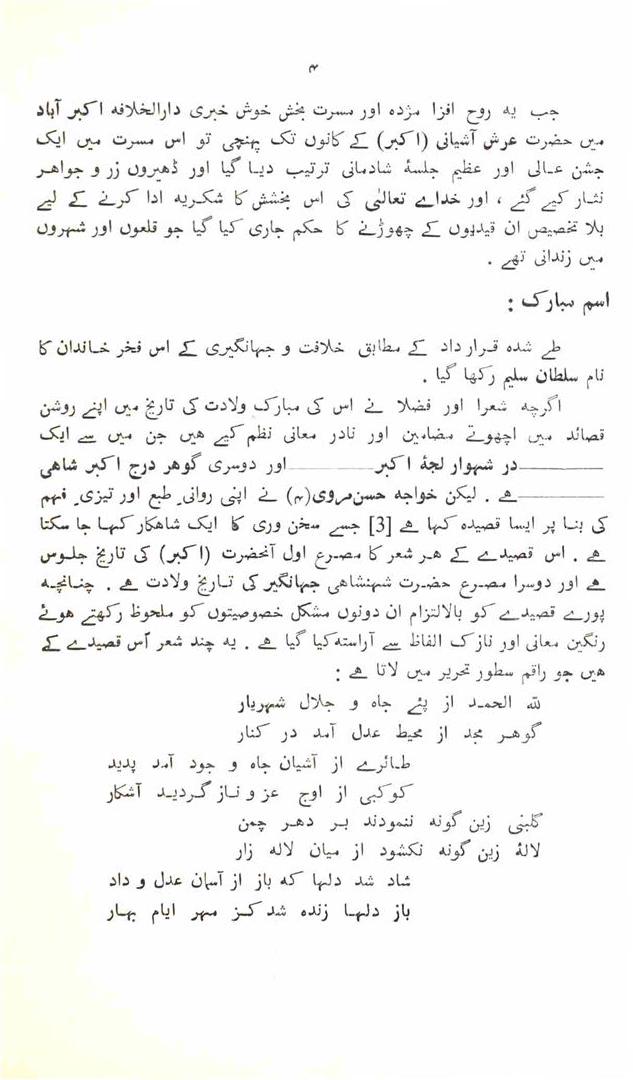 ۴
جب یہ روح افزا مژدہ اور مسرت بخش خوش خبری دارالخلافہ اکبر آباد
میں حضرت عرش آشیانی (اکبر) کے کانوں تک پہنچی تو اس مسرت میں ایک
جشن عالی اور عظیم جلسۂ شادمانی ترتیب دیا گیا اور ڈھیروں زر و جواهر
نثار کیے گئے ، اور خداے تعالیٰ کی اس بخشش کا شکریہ ادا کرنے کے لیے
بلا تخصیص ان قیدیوں کے چھوڑنے کا حکم جاری کیا گیا جو قلعوں اور شہروں
میں زندانی تھے .
اسم مبارک :
طے شدہ قرار داد کے مطابق خلافت و جہانگیری کے اس فخر خاندان کا
نام سلطان سلیم رکھا گیا .
اگرچہ شعرا اور فضلا نے اس کی مبارک ولادت کی تاریخ میں اپنے روشن
قصائد میں اچھوتے مضامین اور نادر معانی نظم کیے ھیں جن میں سے ایک
———در شہوار لجۂ اکبر———اور دوسری گوھر درج اکبر شاھی
———ھے . لیکن خواجہ حسن مروی(۴) نے اپنی روانیِ طبع اور تیزیِ فہم
کی بنا پر ایسا قصیدہ کہا ھے [3] جسے سخن وری کا ایک شاھکار کہا جا سکتا
ھے . اس قصیدے کے ھر شعر کا مصرع اول آنحضرت (اکبر) کی تاریخ جلوس
ھے اور دوسرا مصرع حضرت شہنشاھی جہانگیر کی تاریخ ولادت ھے . چنانچہ
پورے قصیدے کو بالالتزام ان دونوں مشکل خصوصیتوں کو ملحوظ رکھتے ھوئے
رنگین معانی اور نازک الفاظ سے آراستہ کیا گیا ھے . یہ چند شعر اُس قصیدے کے
ھیں جو راقم سطور تحریر میں لاتا ھے :
للہ الحمد از پئے جاہ و جلال شہریار
گوھر مجد از محیط عدل آمد در کنار
طائرے از آشیان جاہ و جود آمد پدید
کوکبی از اوج عز و ناز گردید آشکار
گلبنی زین گونہ ننمودند بر دھر چمن
لالۂ زین گونہ نکشود از میان لالہ زار
شاد شد دلہا کہ باز از آسمان عدل و داد
باز دلہا زندہ شد کز مہر ایام بہار